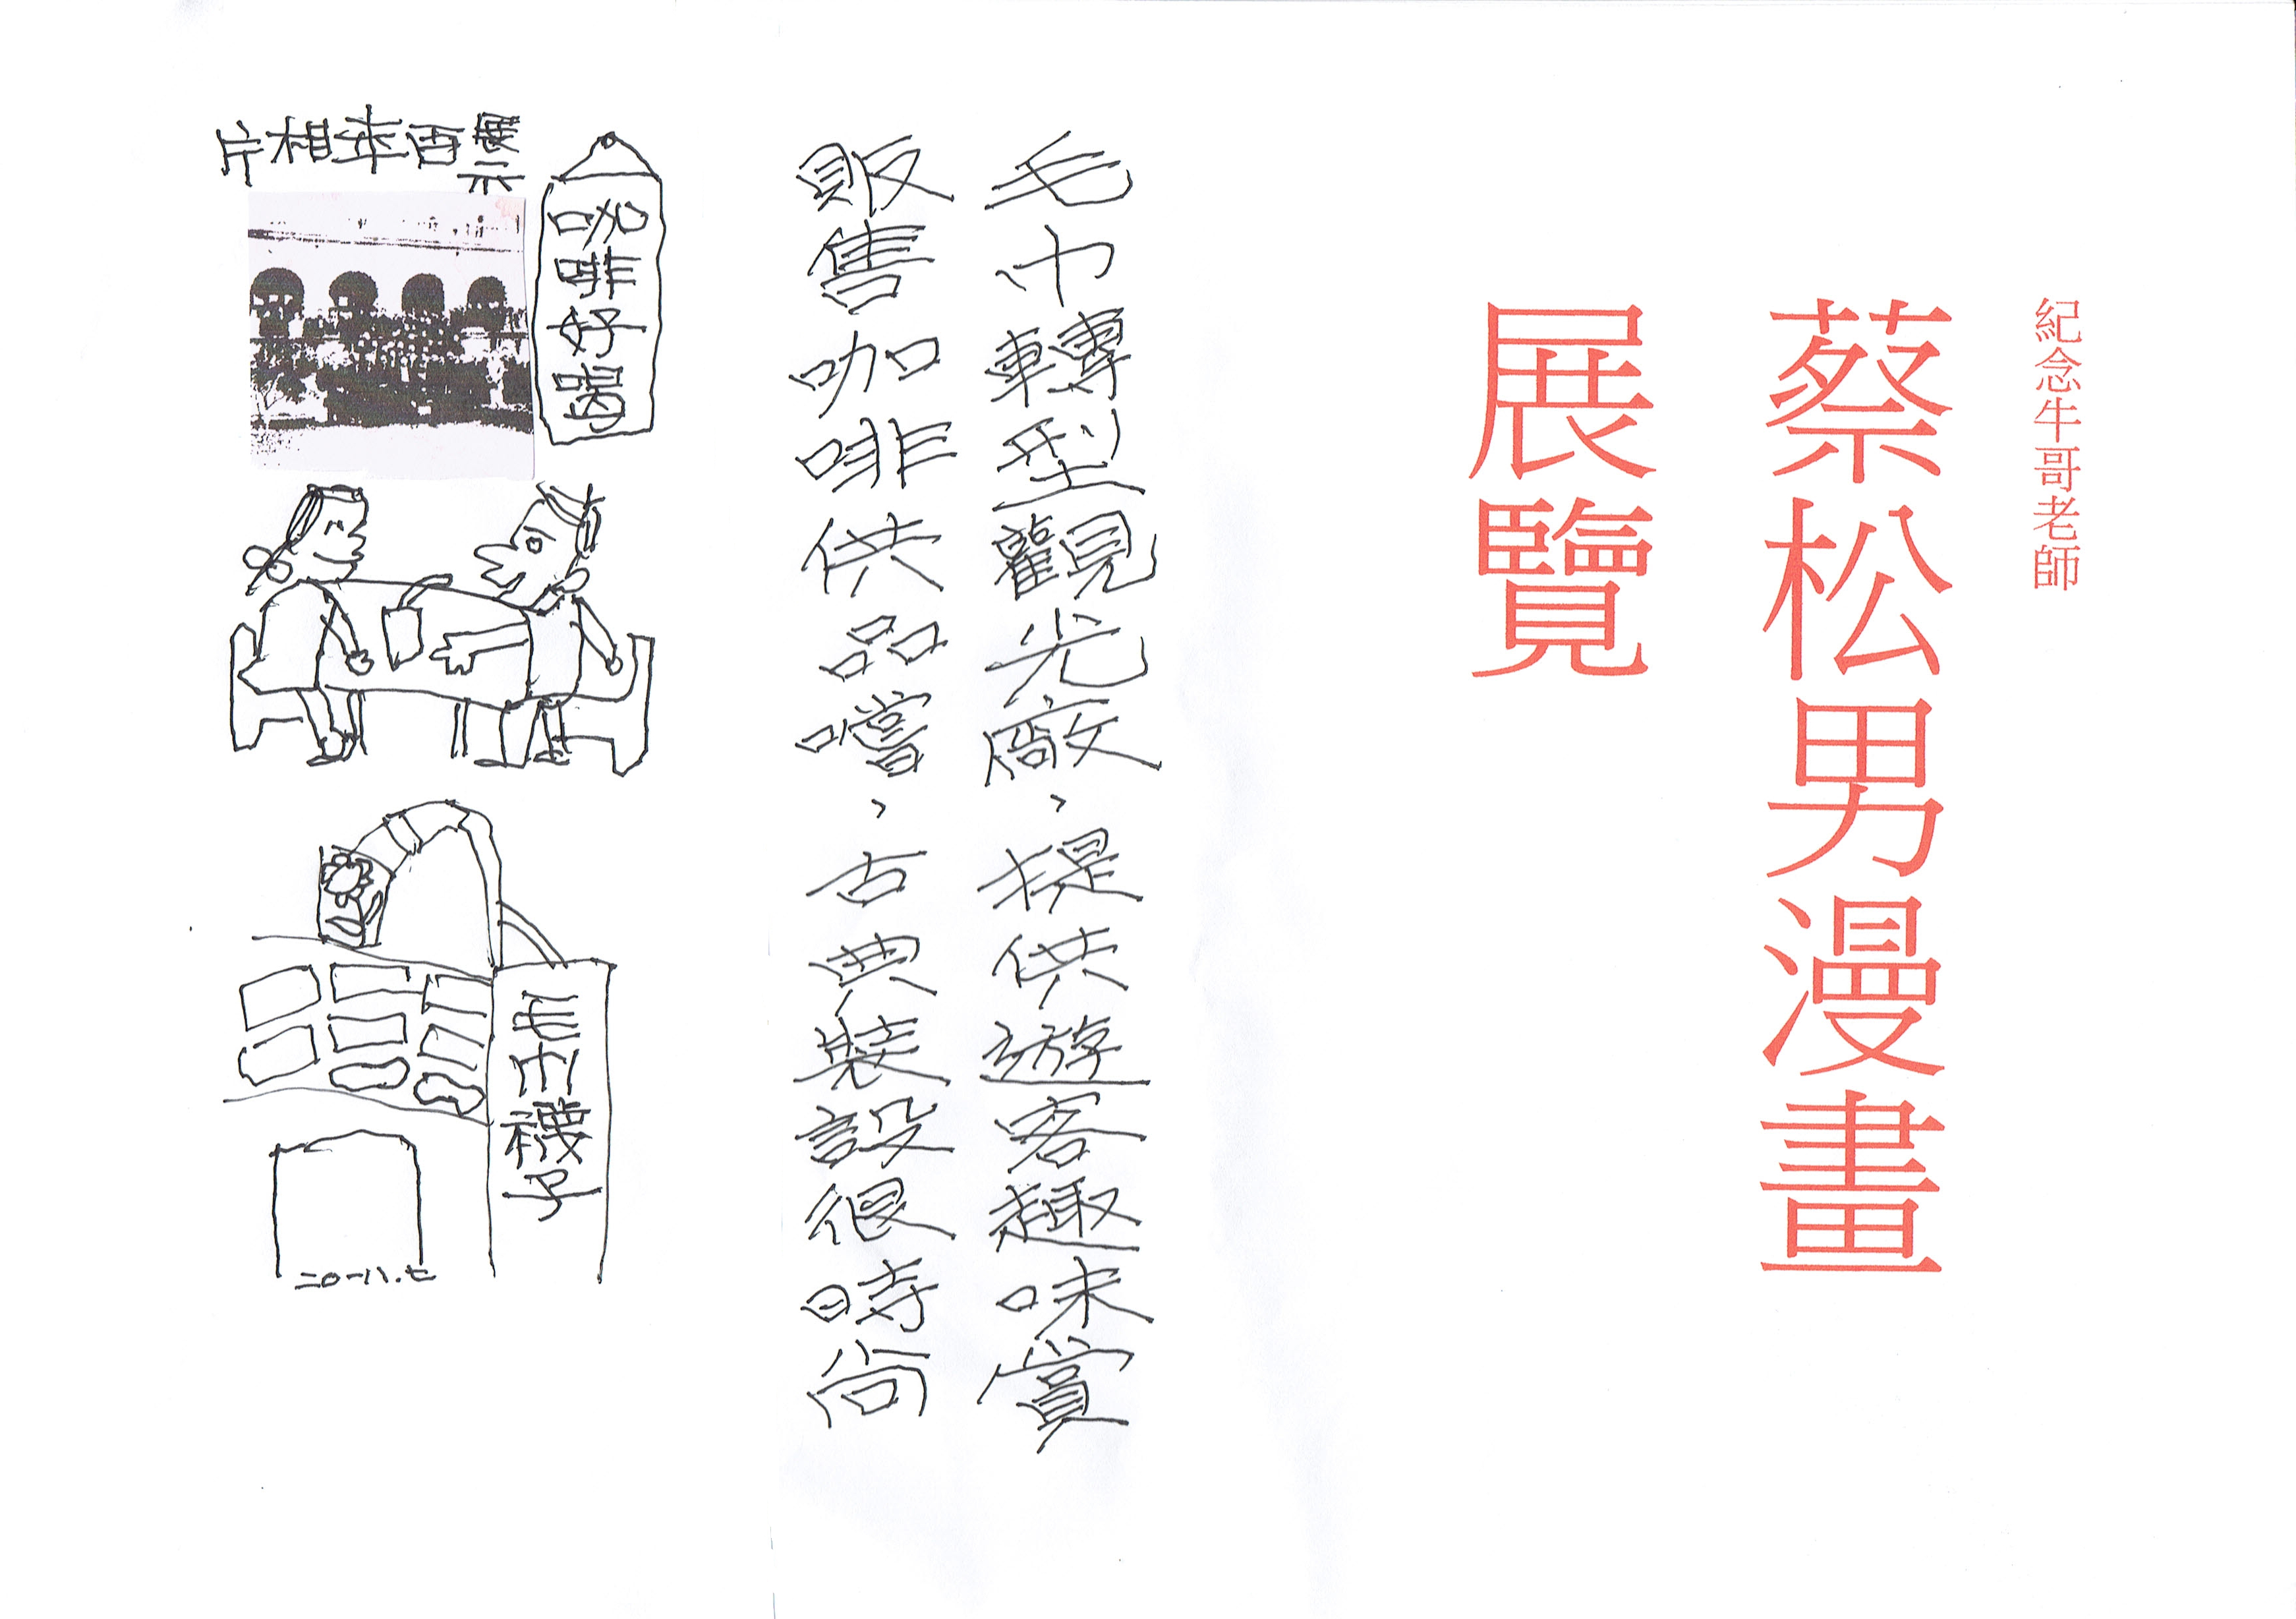 紀念牛哥老師
蔡松男漫畫
展覽
毛巾轉型觀光廠、提供遊客趣味賞
販售咖啡供品嚐、古典裝設很時尚
咖啡好喝
展示百年相片
毛巾襪子
二0一八.七